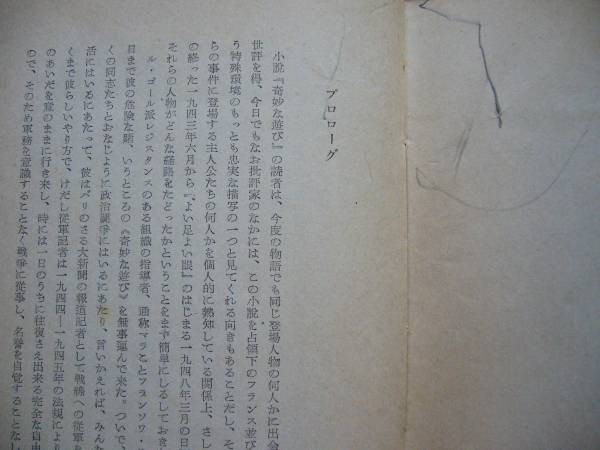 プロローグ
小説『奇妙な遊び』の読者は、今度の物語でも同じ登場人物の何人かに出会
世評を得、今日でもなお批評家のなかには、この小説を占領下のフランス並び
う特殊環境のもっとも忠実な描写の一つと見てくれる向きもあることだし、そ
らの事件に登場する主人公たちの何人かを個人的に熟知している関係上、さし
の終った一九四三年六月から『よい足よい眼』のはじまる一九四八年三月の日
それらの人物がどんな経路をたどったかということをまず簡単にしるしておき
ル・ゴール派レジスタンスのある組織の指導者、通称マラことフランソワ・
日まで彼の危険な賭、いうところの《奇妙な遊び》を無事運んで来た。ついで、
くの同志たちとおなじように政治闘争にはいるにあたり、言いかえれば、みんな
活にはいるにあたって、彼はパリのさる大新聞の報道記者として戦線への従軍を
くまで彼らしいやり方で、けだし従軍記者は一九四四―一九四五年の法規により
のあいだを意のままに行き来し、時には一日のうちに往復さえ出来る完全な自由
ので、そのため軍務を意識することなく戦争に従事し、名誉を自覚することなし